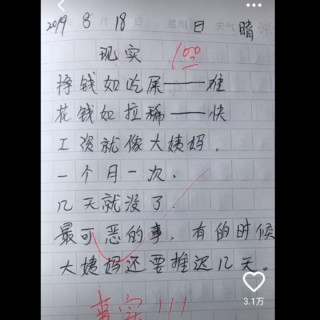 2019 8 18 日 暗
现实 100
挣钱如吃屎——难
花钱如拉稀——快
工资就像大姨妈,
一个月一次.
几天就没了.
最可恶的事,有的时候
大姨妈还要推迟几天。
3.1万
真实!!!